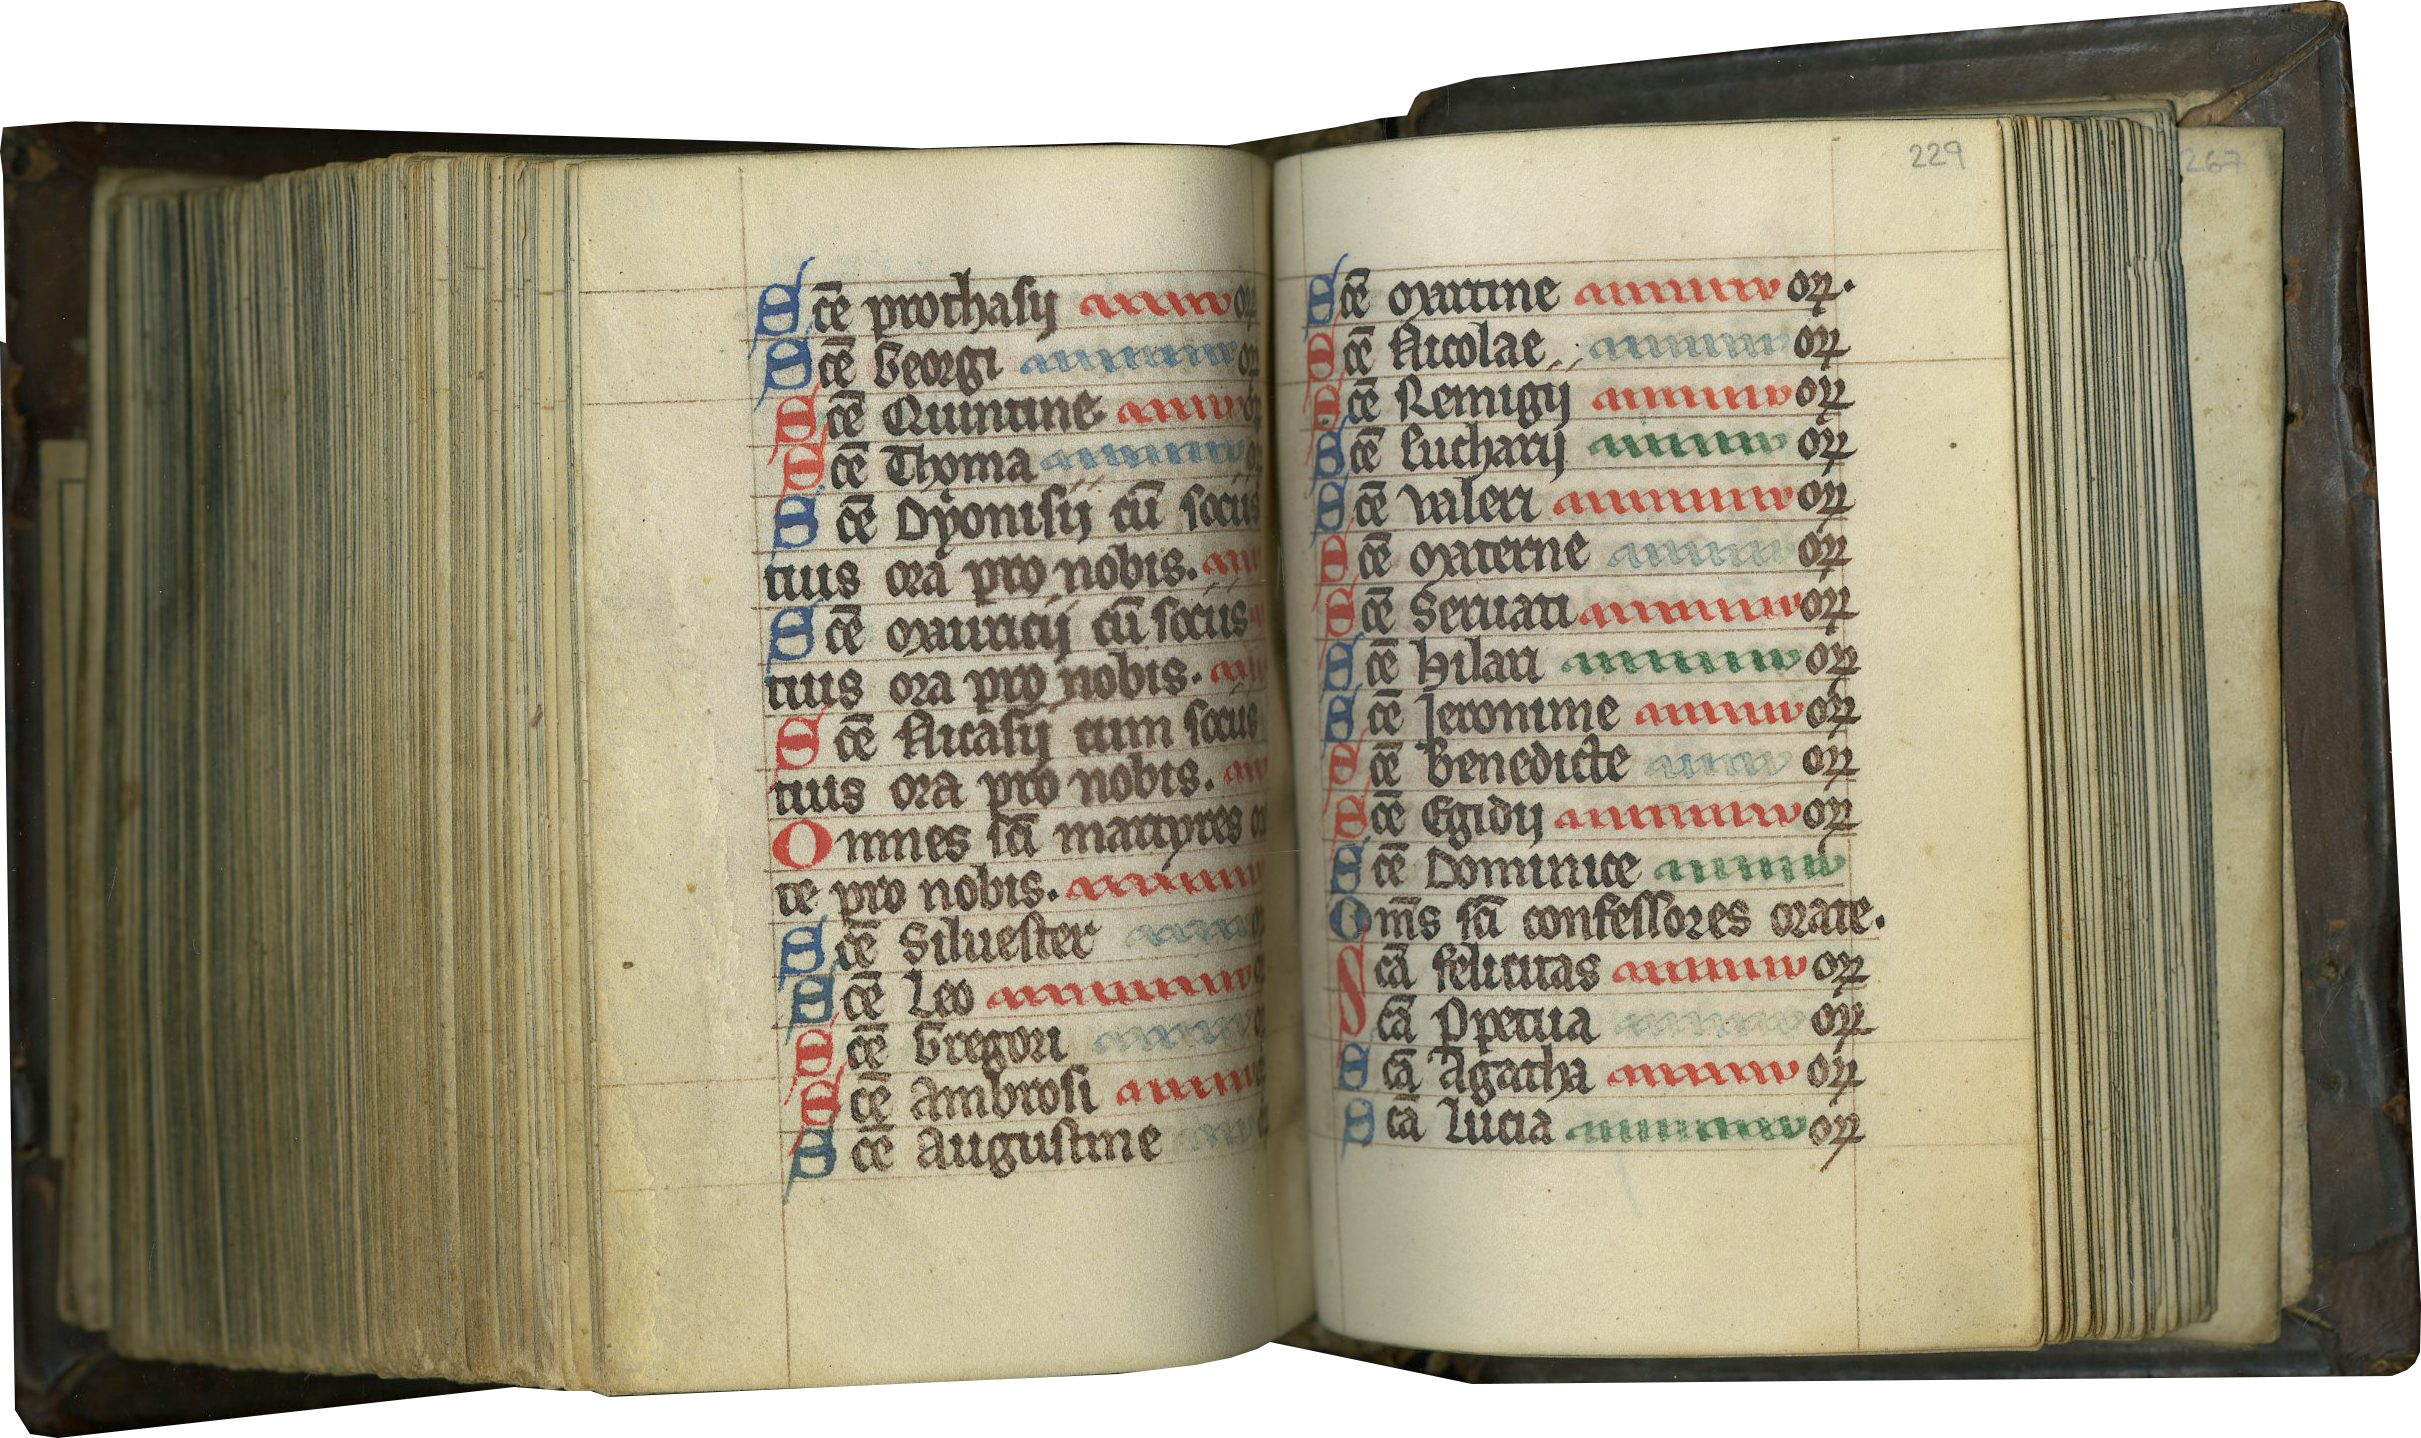 Sce prothasij or
Sce Georgi or
Sce Quintine or
Sce Thoma or
Sce Dyonisij cu̅ socijs
tuis ora pro nobis.
Sce Mauricij cu̅ socijs
tuis ora pro nobis.
Sce Nicasij cum socijs
tuis ora pro nobis.
Omnes sc̅i martyres ora
te pro nobis.
Sce̅ Siluester or
Sce̅ Leo or
Sce̅ Gregori or
Sce̅ Ambrosi
Sce̅ Augustine
229
267
Sce̅ Martine or.
Sce̅ Nicolae or
Sce̅ Remigij or
Sce̅ Eucharij or
Sce̅ Valeri or
Sce̅ Materne or
Sce̅ Seruati or
Sce̅ Hilari or
Sce̅ Jeronime or
Sce̅ Benedicte or
Sce̅ Egidij or
Sce̅ Dominice
Om̅s sc̅i confessores orate.
Sca̅ felicitas or
Sca̅ Ppetua or
Sca̅ Agatha or
Sca̅ Lucia or